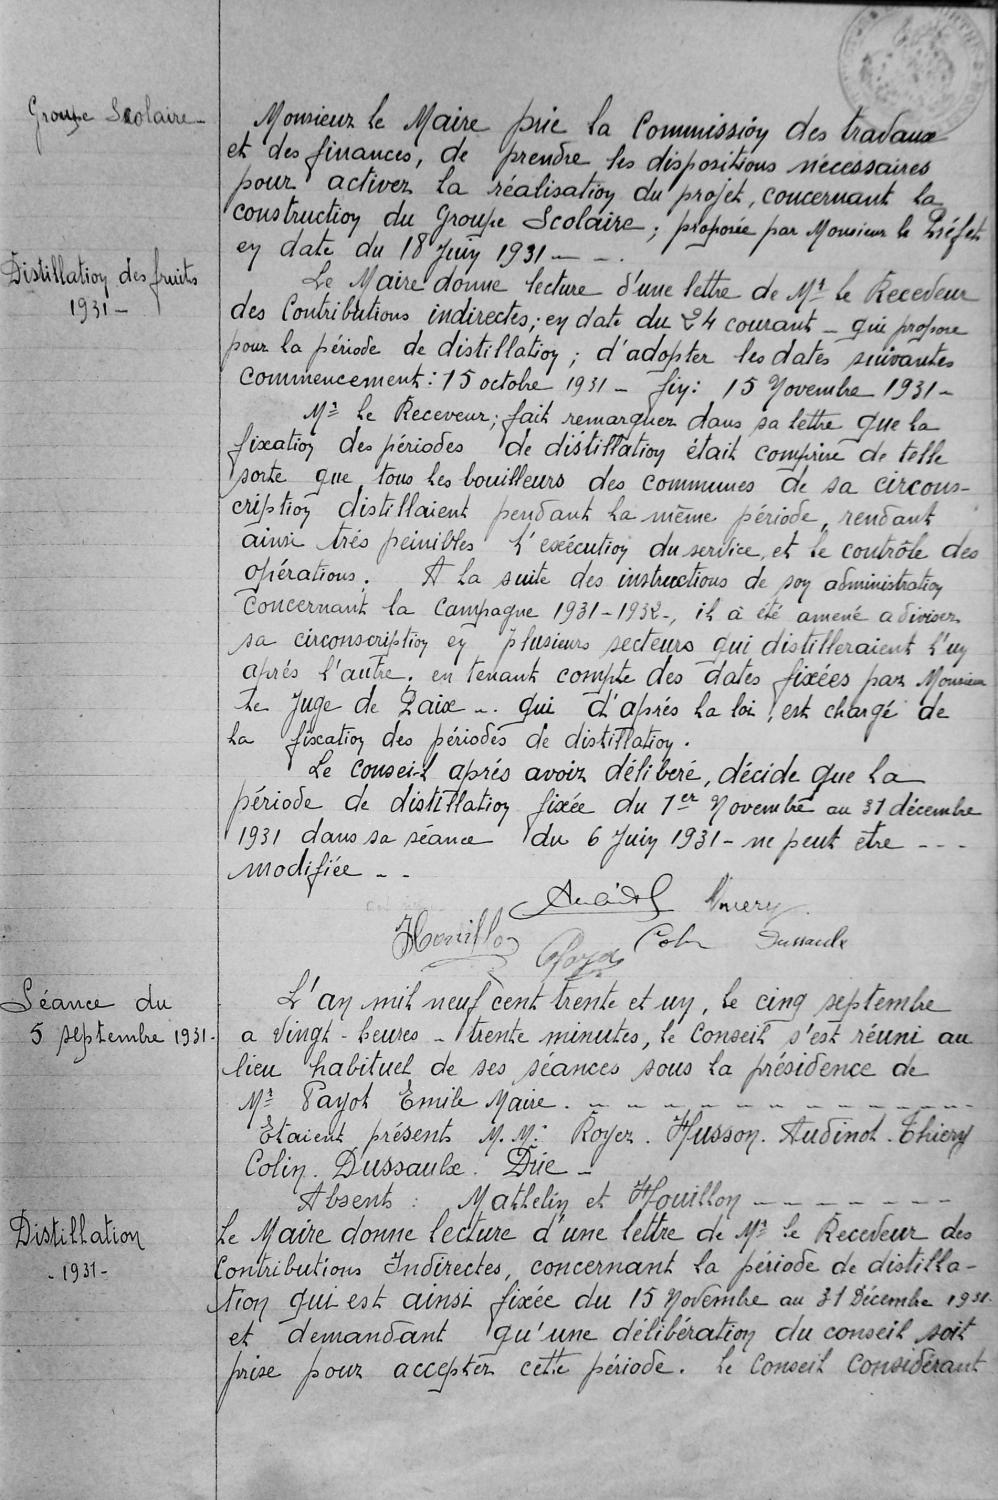 Groupe Scolaire -
Monsieur le Maire prie la Commission des travaux
et des finances, de prendre les dispositions nécessaires
pour activer la réalisation du projet, concernant la
construction du Groupe Scolaire ; proposée par Monsieur le Préfet
en date du 18 Juin 1931 - - .
Distillation des fruits
1931 -
Le Maire donne lecture d'une lettre de Mr le Receveur
des Contributions indirectes ; en date du 24 courant - qui propose
pour la période de distillation ; d'adopter les dates suivantes
commencement : 15 octobre 1931 - fin : 15 Novembre 1931 -
Mr le Receveur ; fait remarquer dans sa lettre que la
fixation des périodes de distillation était comprise de telle
sorte que tous les bouilleurs des communes de sa circons-
cription distillaient pendant la même période, rendant
ainsi très peinibles l'exécution du service, et le contrôle des
opérations. A la suite des instructions de son administration
concernant la Campagne 1931-1932 -, il a été amené a diviser
sa circonscription en plusieurs secteurs qui distilleraient l'un
après l'autre. en tenant compte des dates fixées par Monsieur
le Juge de Paix - . qui d'après la loi, est chargé de
la fixation des périodes de distillation.
Le Conseil après avoir délibéré, décide que la
période de distillation fixée du 1er Novembre au 31 décembre
1931 dans sa séance du 6 Juin 1931 - ne peut être - - -
modifiée - -
Thiery
Houillon Colin Dussaulx
Séance du
5 septembre 1931 -
L'an mil neuf cent trente et un, le cinq septembre
a vingt - heures - trente minutes, le Conseil s'est réuni au
lieu habituel de ses séances sous la présidence de
Mr Payot Emile Maire . - - - - - - - - - - - - -
Etaient présents M.M. : Royer . Husson . Audinot . Thiery
Colin . Dussaulx . Drie -
Absents : Mathelin et Houillon - - - - - - -
Distillation
- 1931 -
Le Maire donne lecture d'une lettre de Mr le Receveur des
Contributions Indirectes, concernant la période de distilla-
tion qui est ainsi fixée du 15 Novembre au 31 Décembre 1931.
et demandant qu'une délibération du conseil soit
prise pour accepter cette période. Le Conseil considérant